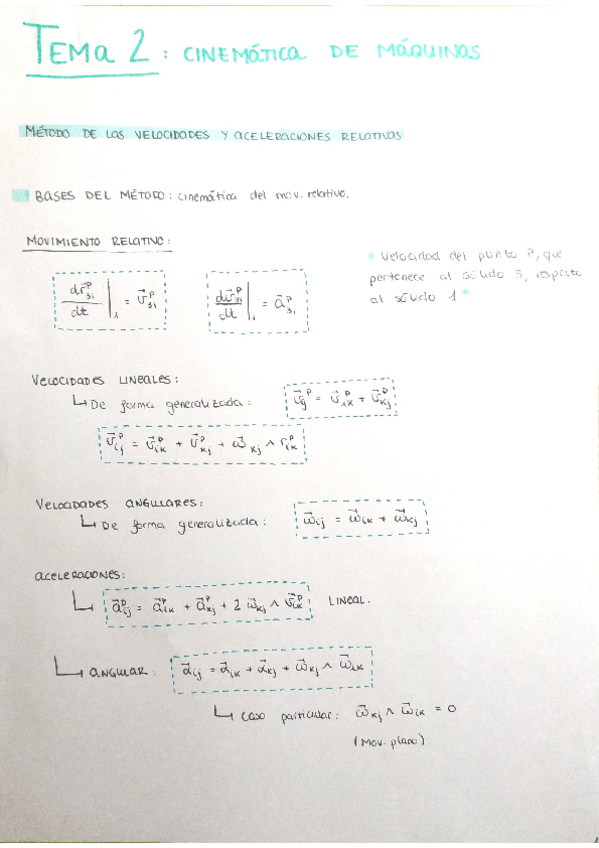 TEMA 2: CINEMÁTICA DE MÁQUINAS
MÉTODO DE LAS VELOCIDADES Y ACELERACIONES RELATIVAS
BASES DEL MÉTODO: cinemática del mov. relativo.
MOVIMIENTO RELATIVO:
" Velocidad del punto P, que
pertenece al sólido 3, respecto
al sólido 1 "
dr⃗₃₁ᴾ/dt |₁ = v⃗₃₁ᴾ
dv⃗₃₁ᴾ/dt |₁ = a⃗₃₁ᴾ
VELOCIDADES LINEALES:
↳ De forma generalizada: v⃗ᵢⱼᴾ = v⃗ᵢₖᴾ + v⃗ₖⱼᴾ
v⃗ᵢⱼᴾ = v⃗ᵢₖᴾ + v⃗ₖⱼᴾ + ω⃗ₖⱼ ∧ rᵢₖᴾ
VELOCIDADES ANGULARES:
↳ De forma generalizada: ω⃗ᵢⱼ = ω⃗ᵢₖ + ω⃗ₖⱼ
ACELERACIONES:
↳ a⃗ᵢⱼᴾ = a⃗ᵢₖᴾ + a⃗ₖⱼᴾ + 2 ω⃗ₖⱼ ∧ v⃗ᵢₖᴾ LINEAL.
↳ ANGULAR: α⃗ᵢⱼ = α⃗ᵢₖ + α⃗ₖⱼ + ω⃗ₖⱼ ∧ ω⃗ᵢₖ
↳ Caso particular: ω⃗ₖⱼ ∧ ω⃗ᵢₖ = 0
(Mov. plano)